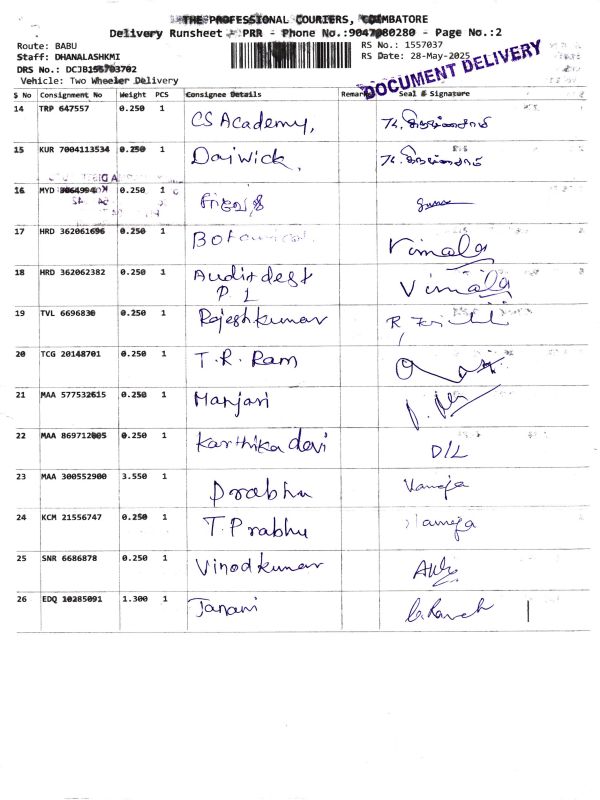 THE PROFESSIONAL COURIERS, COIMBATORE
Delivery Runsheet - PRR - Phone No.:9047080280 - Page No.:2
Route: BABU
RS No.: 1557037
Staff: DHANALASHKMI
RS Date: 28-May-2025
DRS No.: DCJB155703702
Vehicle: Two Wheeler Delivery
DOCUMENT DELIVERY
S No Consignment No Weight PCS Consignee Details Remarks Seal & Signature
14 TRP 647557 0.250 1 CS Academy,
15 KUR 7004113534 0.250 1 Daiwick,
16 MYD 0.250 1
17 HRD 362061696 0.250 1 Botanical Vimala
18 HRD 362062382 0.250 1 Audit dest Vimala
P L
19 TVL 6696830 0.250 1 Rajesh kumar
20 TCG 20148701 0.250 1 T.R. Ram
21 MAA 577532615 0.250 1 Manjari
22 MAA 869712005 0.250 1 Karthika devi D/L
23 MAA 300552900 3.550 1 Prabhu
24 KCM 21556747 0.250 1 T.Prabhu
25 SNR 6686878 0.250 1 Vinod kumar
26 EDQ 10285091 1.300 1 Janani